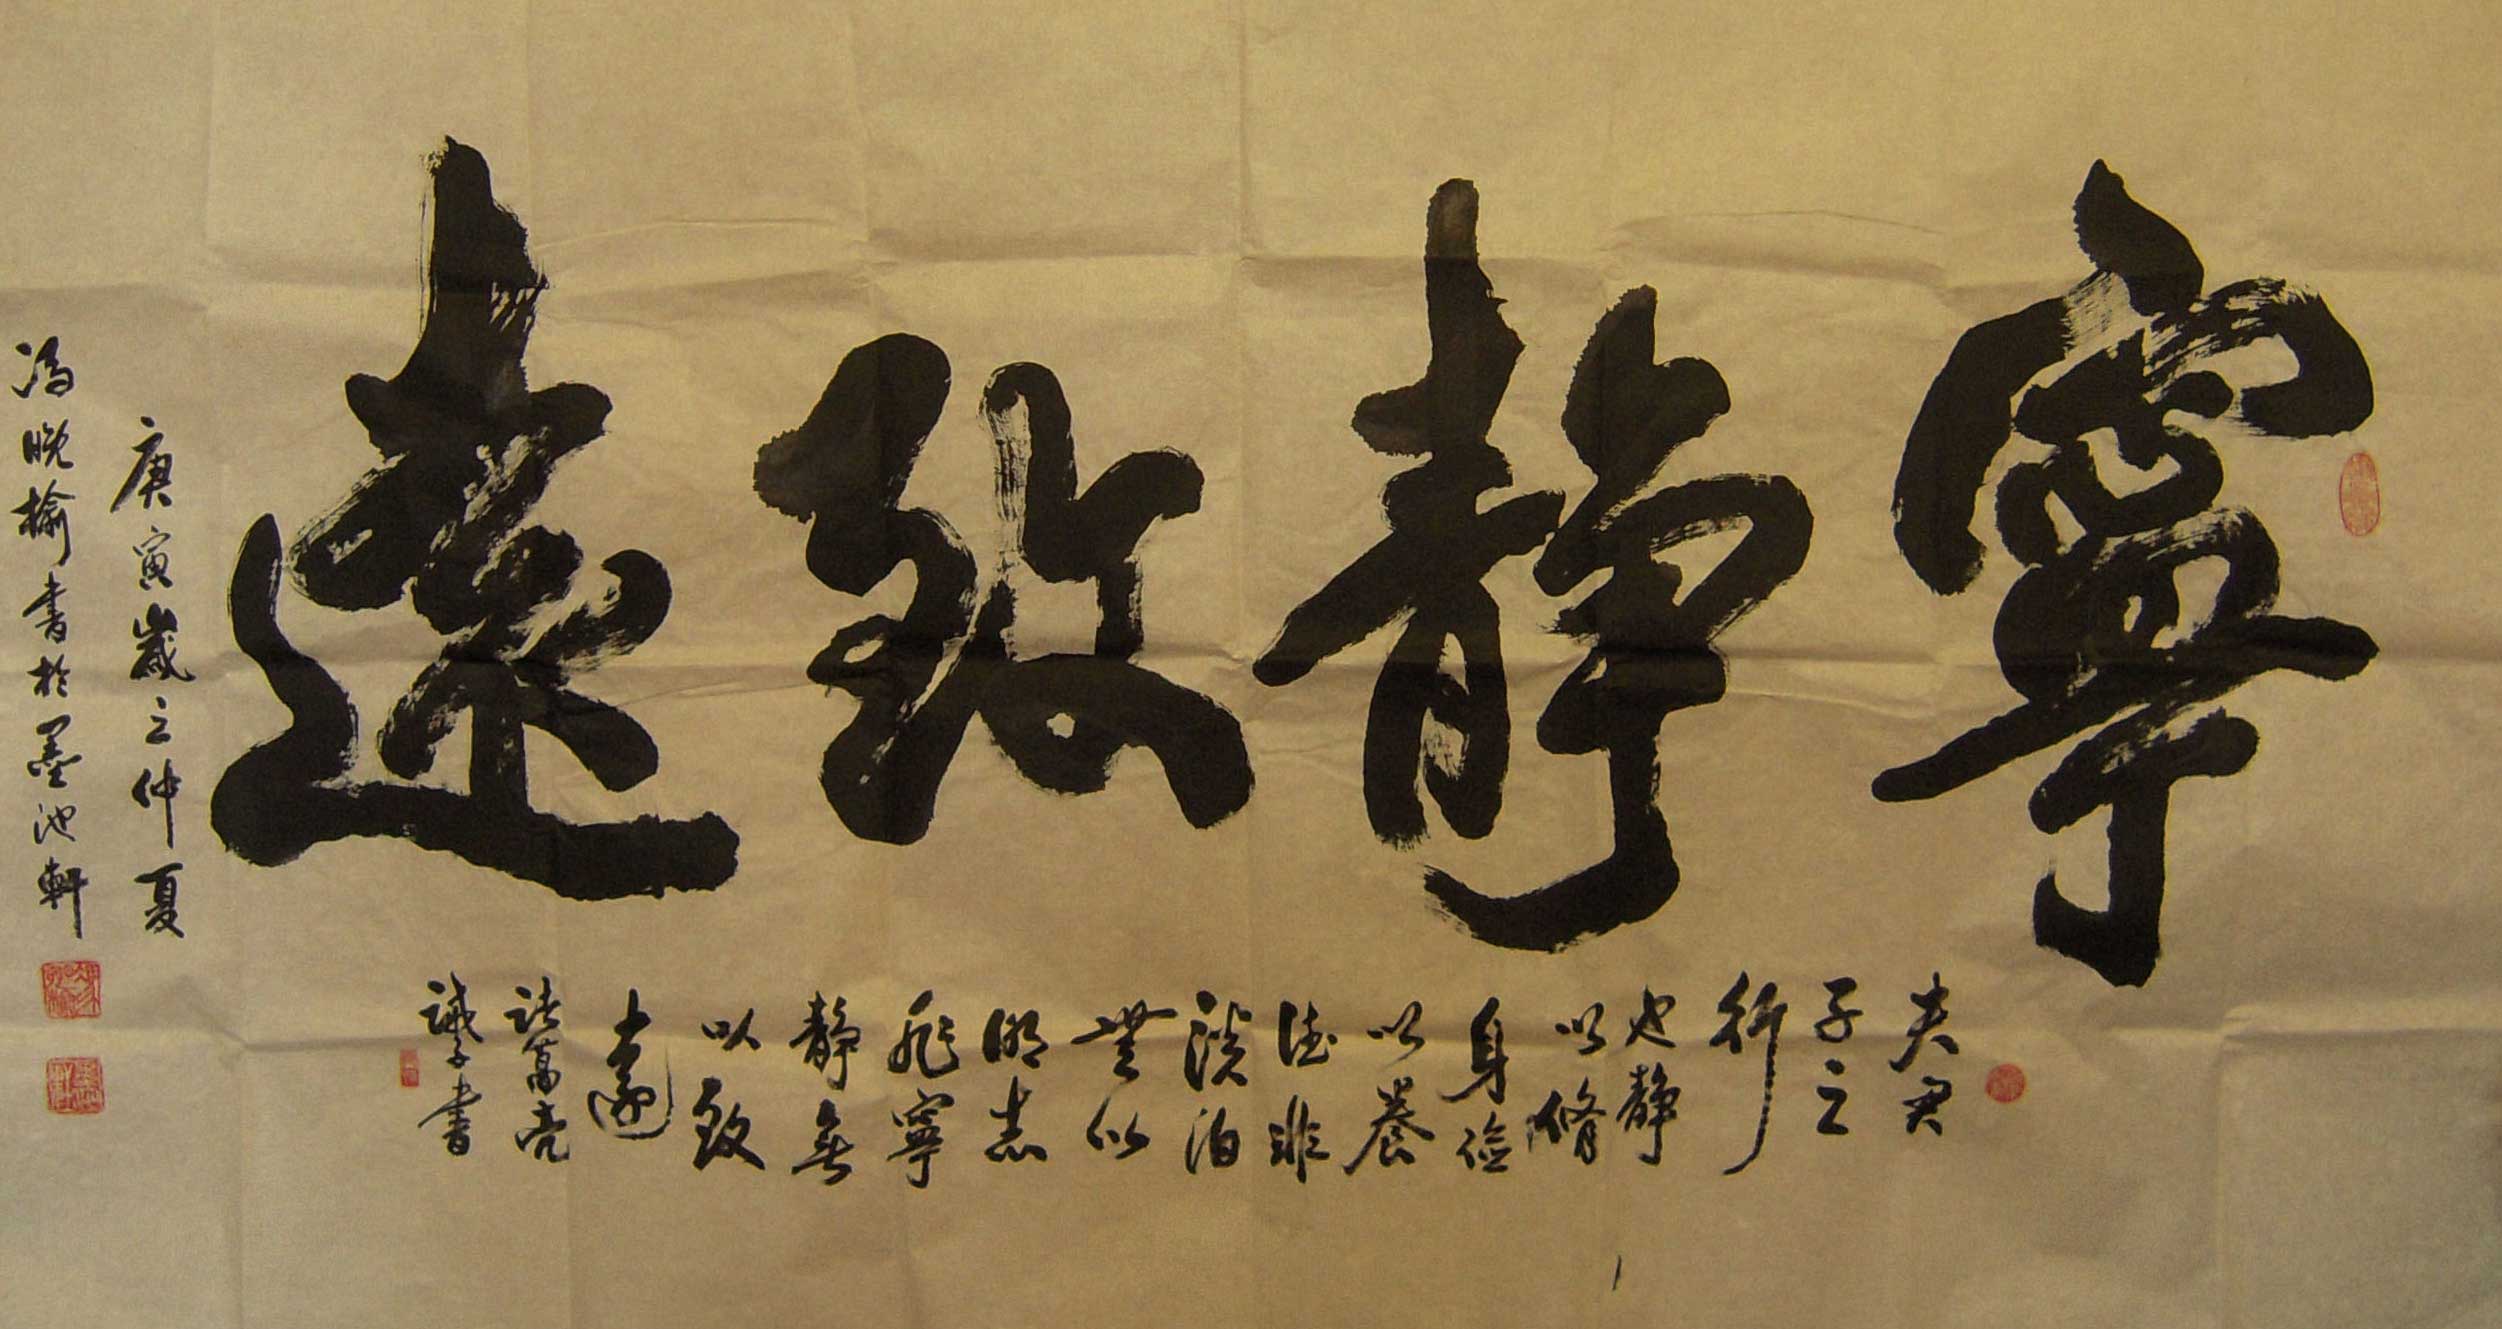 寧静致遠
夫君
子之
行
也静
以脩
身俭
以養
德非
淡泊
無以
明志
非寧
静無
以致
遠
諸葛亮
誡子書
庚寅歲之仲夏
馮晚榆書於墨池軒